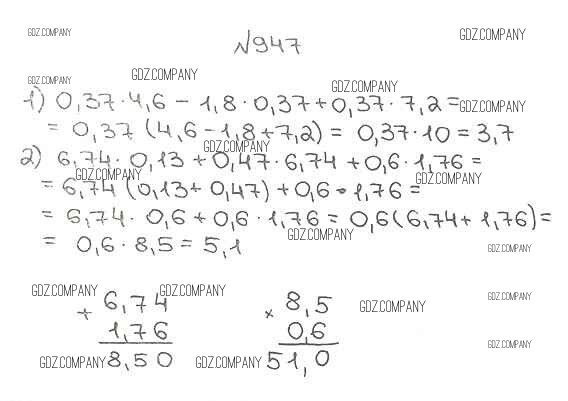 GDZ.COMPANY
№947
GDZ.COMPANY
GDZ.COMPANY
GDZ.COMPANY
GDZ.COMPANY
1) 0,37·4,6 - 1,8·0,37+0,37·7,2=
GDZ.COMPANY
= 0,37 (4,6-1,8+7,2) = 0,37·10 = 3,7
GDZ.COMPANY
2) 6,74·0,13+0,47·6,74+0,6·1,76=
GDZ.COMPANY
GDZ.COMPANY
= 6,74 (0,13+0,47)+0,6·1,76=
= 6,74·0,6+0,6·1,76=0,6(6,74+1,76)=
GDZ.COMPANY
= 0,6·8,5=5,1
GDZ.COMPANY
GDZ.COMPANY
GDZ.COMPANY
GDZ.COMPANY
+ 6,74
1,76
8,50
× 8,5
0,6
51,0
GDZ.COMPANY
GDZ.COMPANY
GDZ.COMPANY
GDZ.COMPANY